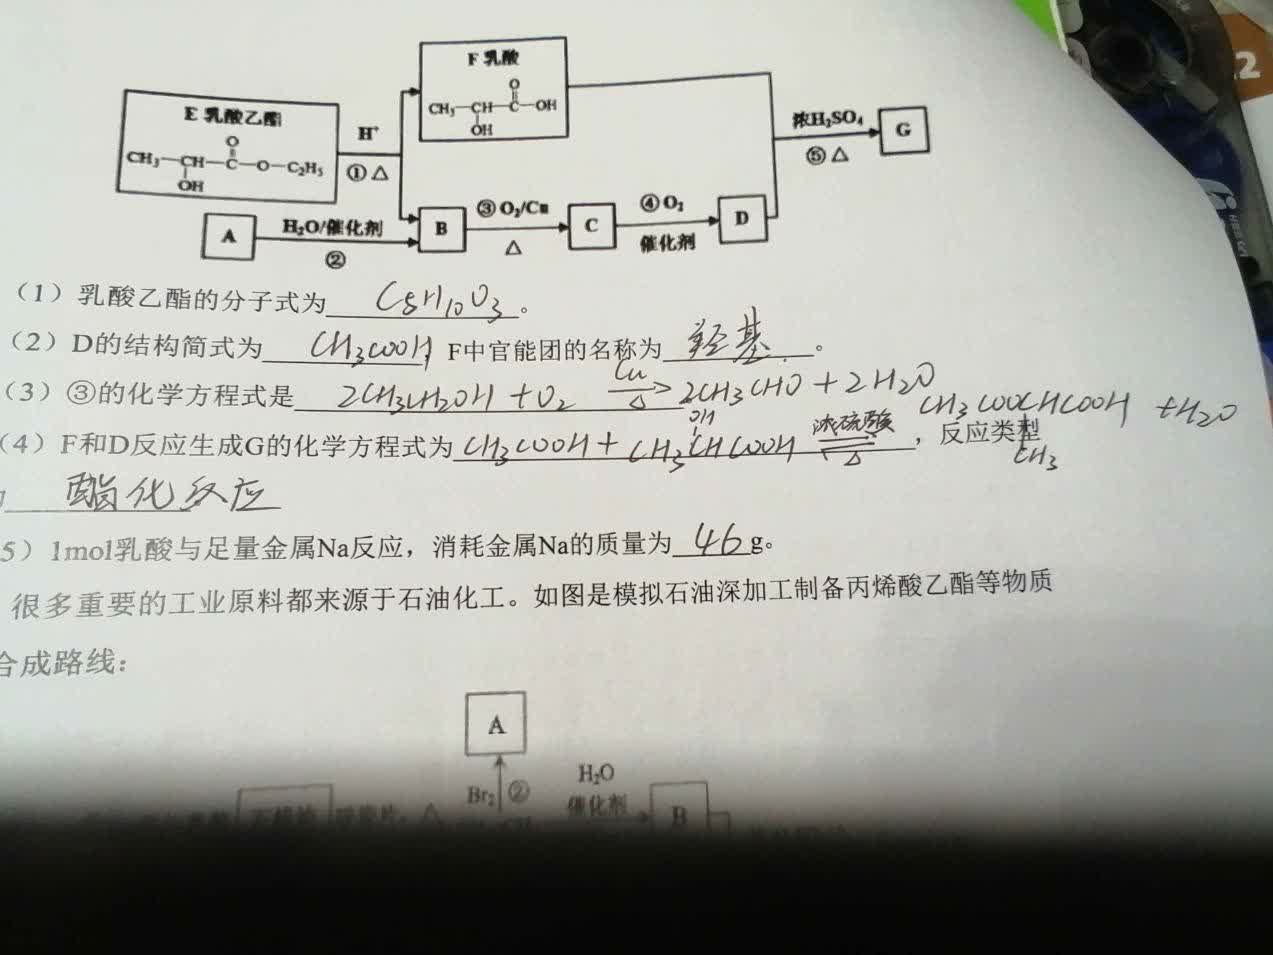 F 乳酸
O
CH₃—CH—C—OH
OH
E 乳酸乙酯
O
CH₃—CH—C—O—C₂H₅
OH
H⁺
①△
浓H₂SO₄
⑤△
G
A
H₂O/催化剂
②
B
③O₂/Cu
△
C
④O₂
催化剂
D
（1）乳酸乙酯的分子式为 C5H10O3 。
（2）D的结构简式为 CH3COOH , F中官能团的名称为 羟基 。
（3）③的化学方程式是 2CH3CH2OH + O2 Cu △ → 2CH3CHO + 2H2O
OH CH3COOCHCOOH + H2O
(4）F和D反应生成G的化学方程式为 CH3COOH + CH3CHCOOH 浓硫酸 △ ，反应类型
CH3
酯化反应
5）1mol乳酸与足量金属Na反应，消耗金属Na的质量为 46 g。
很多重要的工业原料都来源于石油化工。如图是模拟石油深加工制备丙烯酸乙酯等物质
合成路线：
A
Br₂ ②
H₂O
催化剂
B